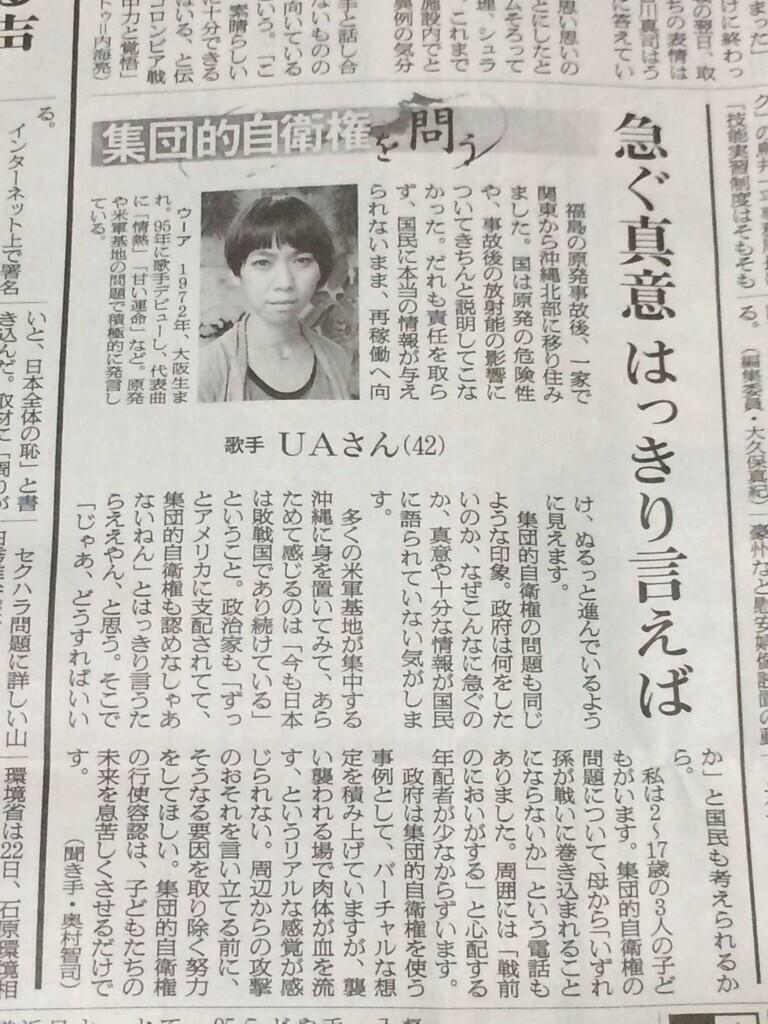 集団的自衛権を問う
急ぐ真意 はっきり言えば
福島の原発事故後、一家で
関東から沖縄北部に移り住み
ました。国は原発の危険性
や、事故後の放射能の影響に
ついてきちんと説明してこな
かった。だれも責任を取ら
ず、国民に本当の情報が与え
られないまま、再稼働へ向
ウーア 1972年、大阪生ま
れ。95年に歌手デビューし、代表曲
に「情熱」「甘い運命」など。原発
や米軍基地の問題で積極的に発言し
ている。
歌手 UAさん(42)
け、ぬるっと進んでいるよう
に見えます。
集団的自衛権の問題も同じ
ような印象。政府は何をした
いのか、なぜこんなに急ぐの
か、真意や十分な情報が国民
に語られていない気がしま
す。
多くの米軍基地が集中する
沖縄に身を置いてみて、あら
ためて感じるのは「今も日本
は敗戦国であり続けている」
ということ。政治家も「ずっ
とアメリカに支配されてて、
集団的自衛権も認めなしゃあ
ないねん」とはっきり言うた
らええやん、と思う。そこで
「じゃあ、どうすればいい
か」と国民も考えられるか
ら。
私は2~17歳の3人の子ど
もがいます。集団的自衛権の
問題について、母から「いずれ
孫が戦いに巻き込まれること
にならないか」という電話も
ありました。周囲には「戦前
のにおいがする」と心配する
年配者が少なからずいます。
政府は集団的自衛権を使う
事例として、バーチャルな想
定を積み上げていますが、襲
い襲われる場で肉体が血を流
す、というリアルな感覚が感
じられない。周辺からの攻撃
のおそれを言い立てる前に、
そうなる要因を取り除く努力
をしてほしい。集団的自衛権
の行使容認は、子どもたちの
未来を息苦しくさせるだけで
す。
(聞き手・奥村智司)
(編集委員・大久保真紀)
「技能実習制度はそもそも
る。
る。
インターネット上で署名
いと、日本全体の恥」と書
き込んだ。取材に「周りが
セクハラ問題に詳しい山
環境省は22日、石原環境相